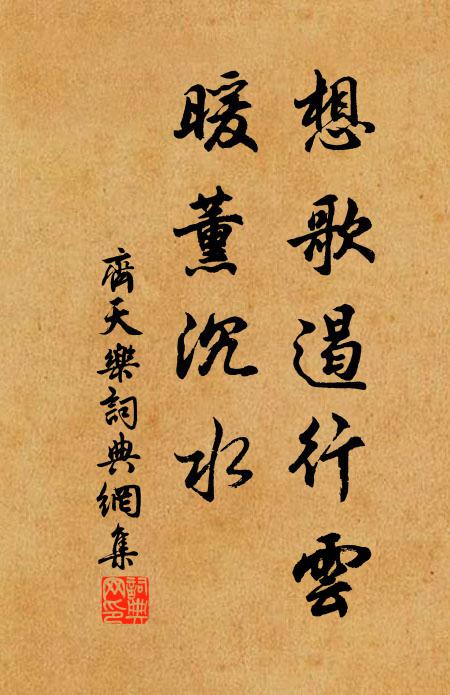 想歌遏行雲
暖薰沉水
齊天樂詞典網集
詞典網印